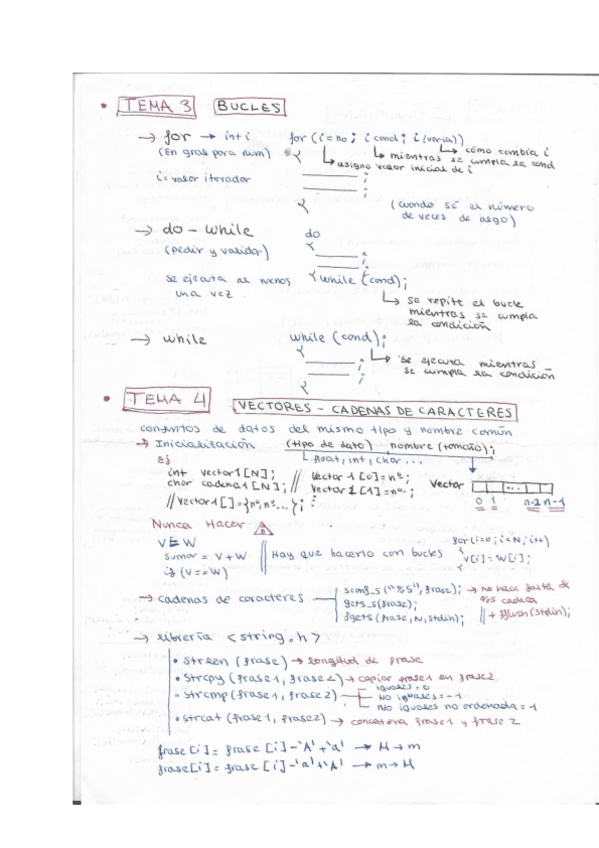 • TEMA 3 BUCLES
→ for → int i for (i = no ; i cond ; i (varia))
(En gros para num) ↳ asigno valor inicial de i ↳ mientras se cumpla la cond ↳ cómo cambia i
i = valor iterador
(cuando sé el número de veces de algo)
→ do - while do
(pedir y validar)
se ejecuta al menos una vez
} while (cond);
↳ se repite el bucle mientras se cumpla la condición
→ while while (cond);
↳ se ejecuta mientras se cumpla la condición
• TEMA 4 VECTORES - CADENAS DE CARACTERES
conjuntos de datos del mismo tipo y nombre común
→ Inicialización (tipo de dato) nombre (tamaño);
Ej float, int, char...
int vector1 [N]; // vector 1 [0] = nº; vector
char cadena1 [N]; // vector 1 [1] = nº; 0 1 n-2 n-1
// vector1 [] = {nº, nº ...};
NUNCA HACER
V = W
sumar = V + W || Hay que hacerlo con bucles
if (V == W)
for (i=0; i<N; i++)
{ V[i] = W[i];
}
→ cadenas de caracteres
scanf_s ("%s", frase); → no hace falta & %s cadena
gets_s (frase);
fgets (frase, N, stdin); || + fflush (stdin);
→ librería <string.h>
• strlen (frase) → longitud de frase
• strcpy (frase1, frase2) → copiar frase1 en frase2
• strcmp (frase1, frase2) iguales = 0
No iguales = -1
No iguales no ordenada = 1
• strcat (frase1, frase2) → concatena frase1 y frase 2
frase [i] = frase [i] - 'A' + 'a' → M → m
frase [i] = frase [i] - 'a' + 'A' → m → M